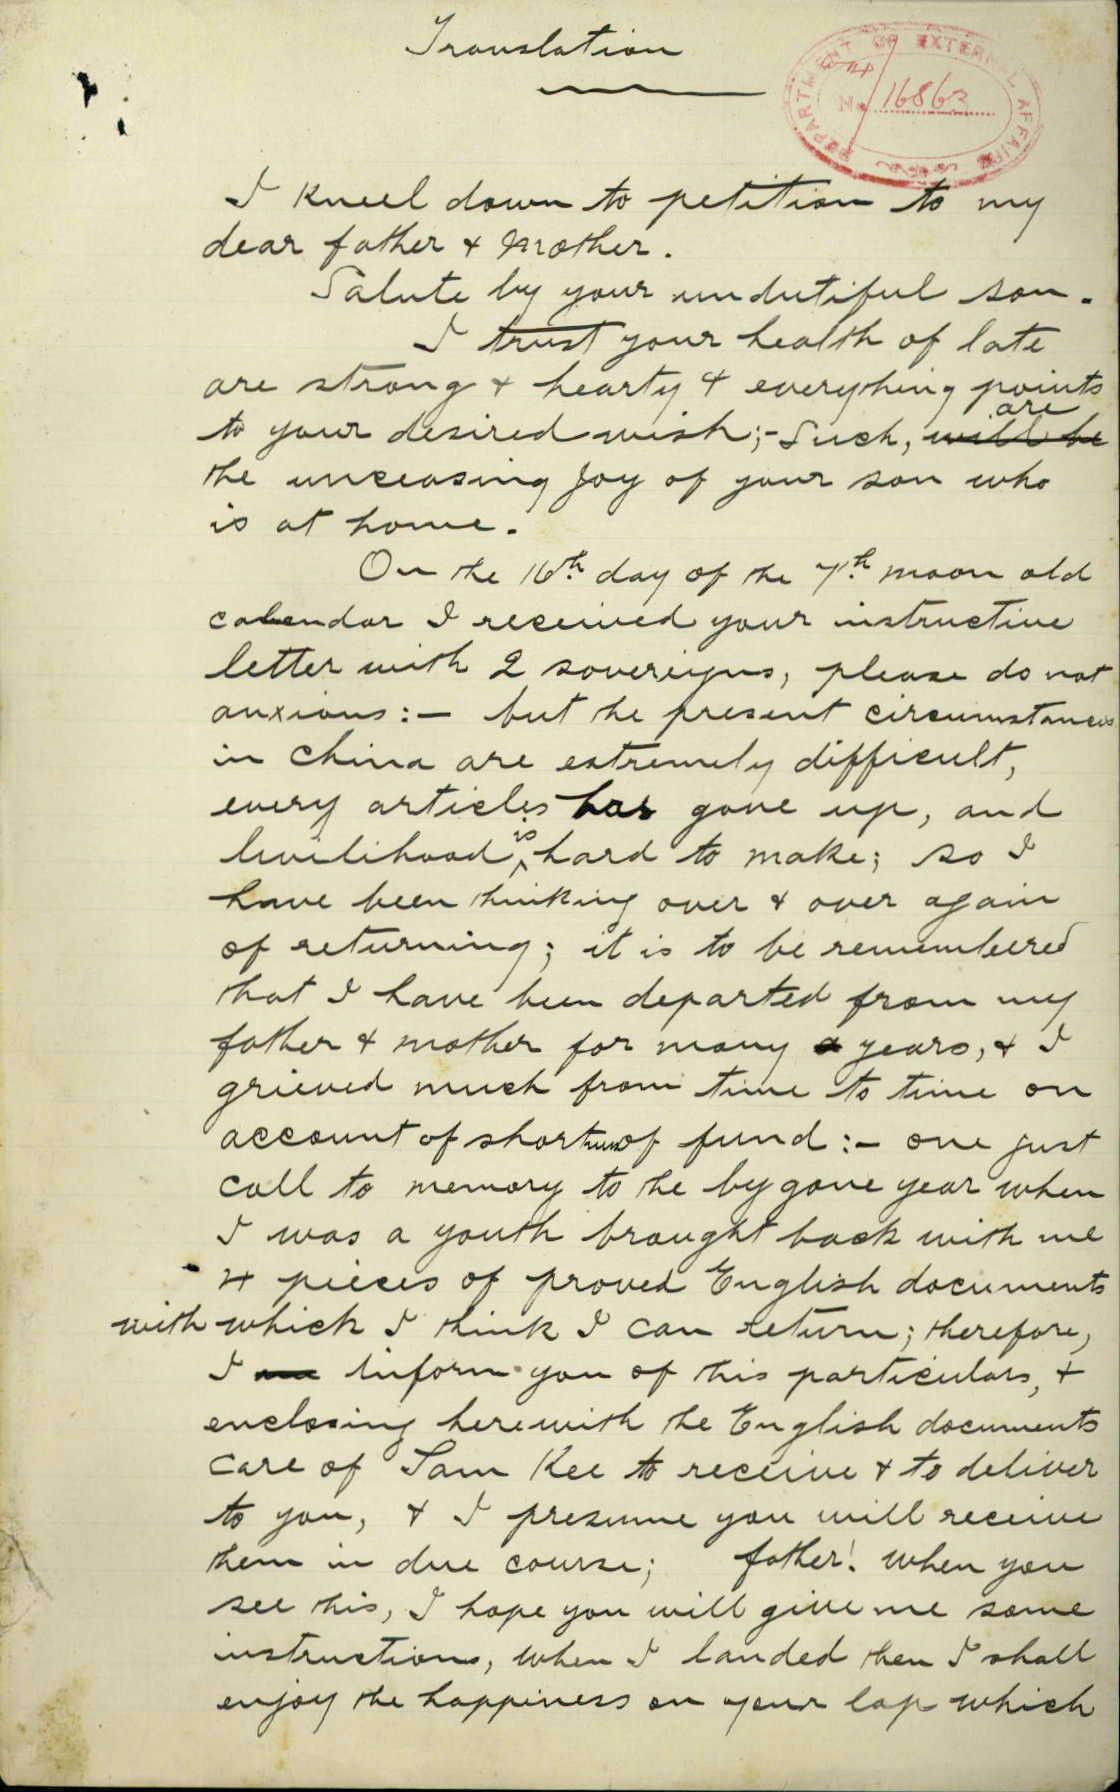 Translation
DEPARTMENT OF EXTERNAL AFFAIRS
No 16863
I kneel down to petition to my
dear father & Mother.
Salute by your undutiful son.
I trust your health of late
are strong & hearty & everything points
to your desired wish;- Such, will be are
the unceasing joy of your son who
is at home.
On the 16th day of the 7th moon old
calendar I received your instructive
letter with 2 sovereigns, please do not
anxious:- but the present circumstances
in China are extremely difficult,
every articles has gone up, and
livilihood is hard to make; so I
have been thinking over & over again
of returning; it is to be remembered
that I have been departed from my
father & mother for many years, & I
grieved much from time to time on
account of shortness of fund:- one just
call to memory to the bygone year when
I was a youth brought back with me
4 pieces of proved English documents
with which I think I can return; therefore,
I inform you of this particulars, &
enclosing herewith the English documents
care of Sam Kee to receive & to deliver
to you, & I presume you will receive
them in due course; father! When you
see this, I hope you will give me some
instructions, when I landed then I shall
enjoy the happiness on your lap which